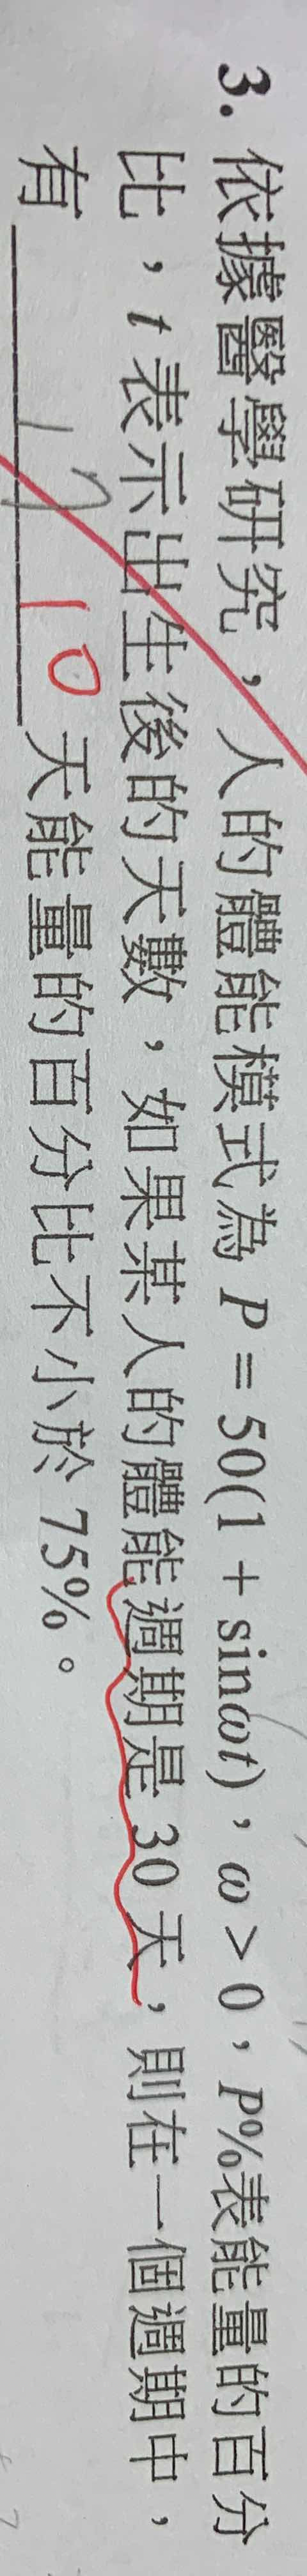 3. 依據醫學研究，人的體能模式為 P = 50(1 + sinωt)，ω > 0，P%表能量的百分
比，t 表示出生後的天數，如果某人的體能週期是 30 天，則在一個週期中，
有 10 天能量的百分比不小於 75%。